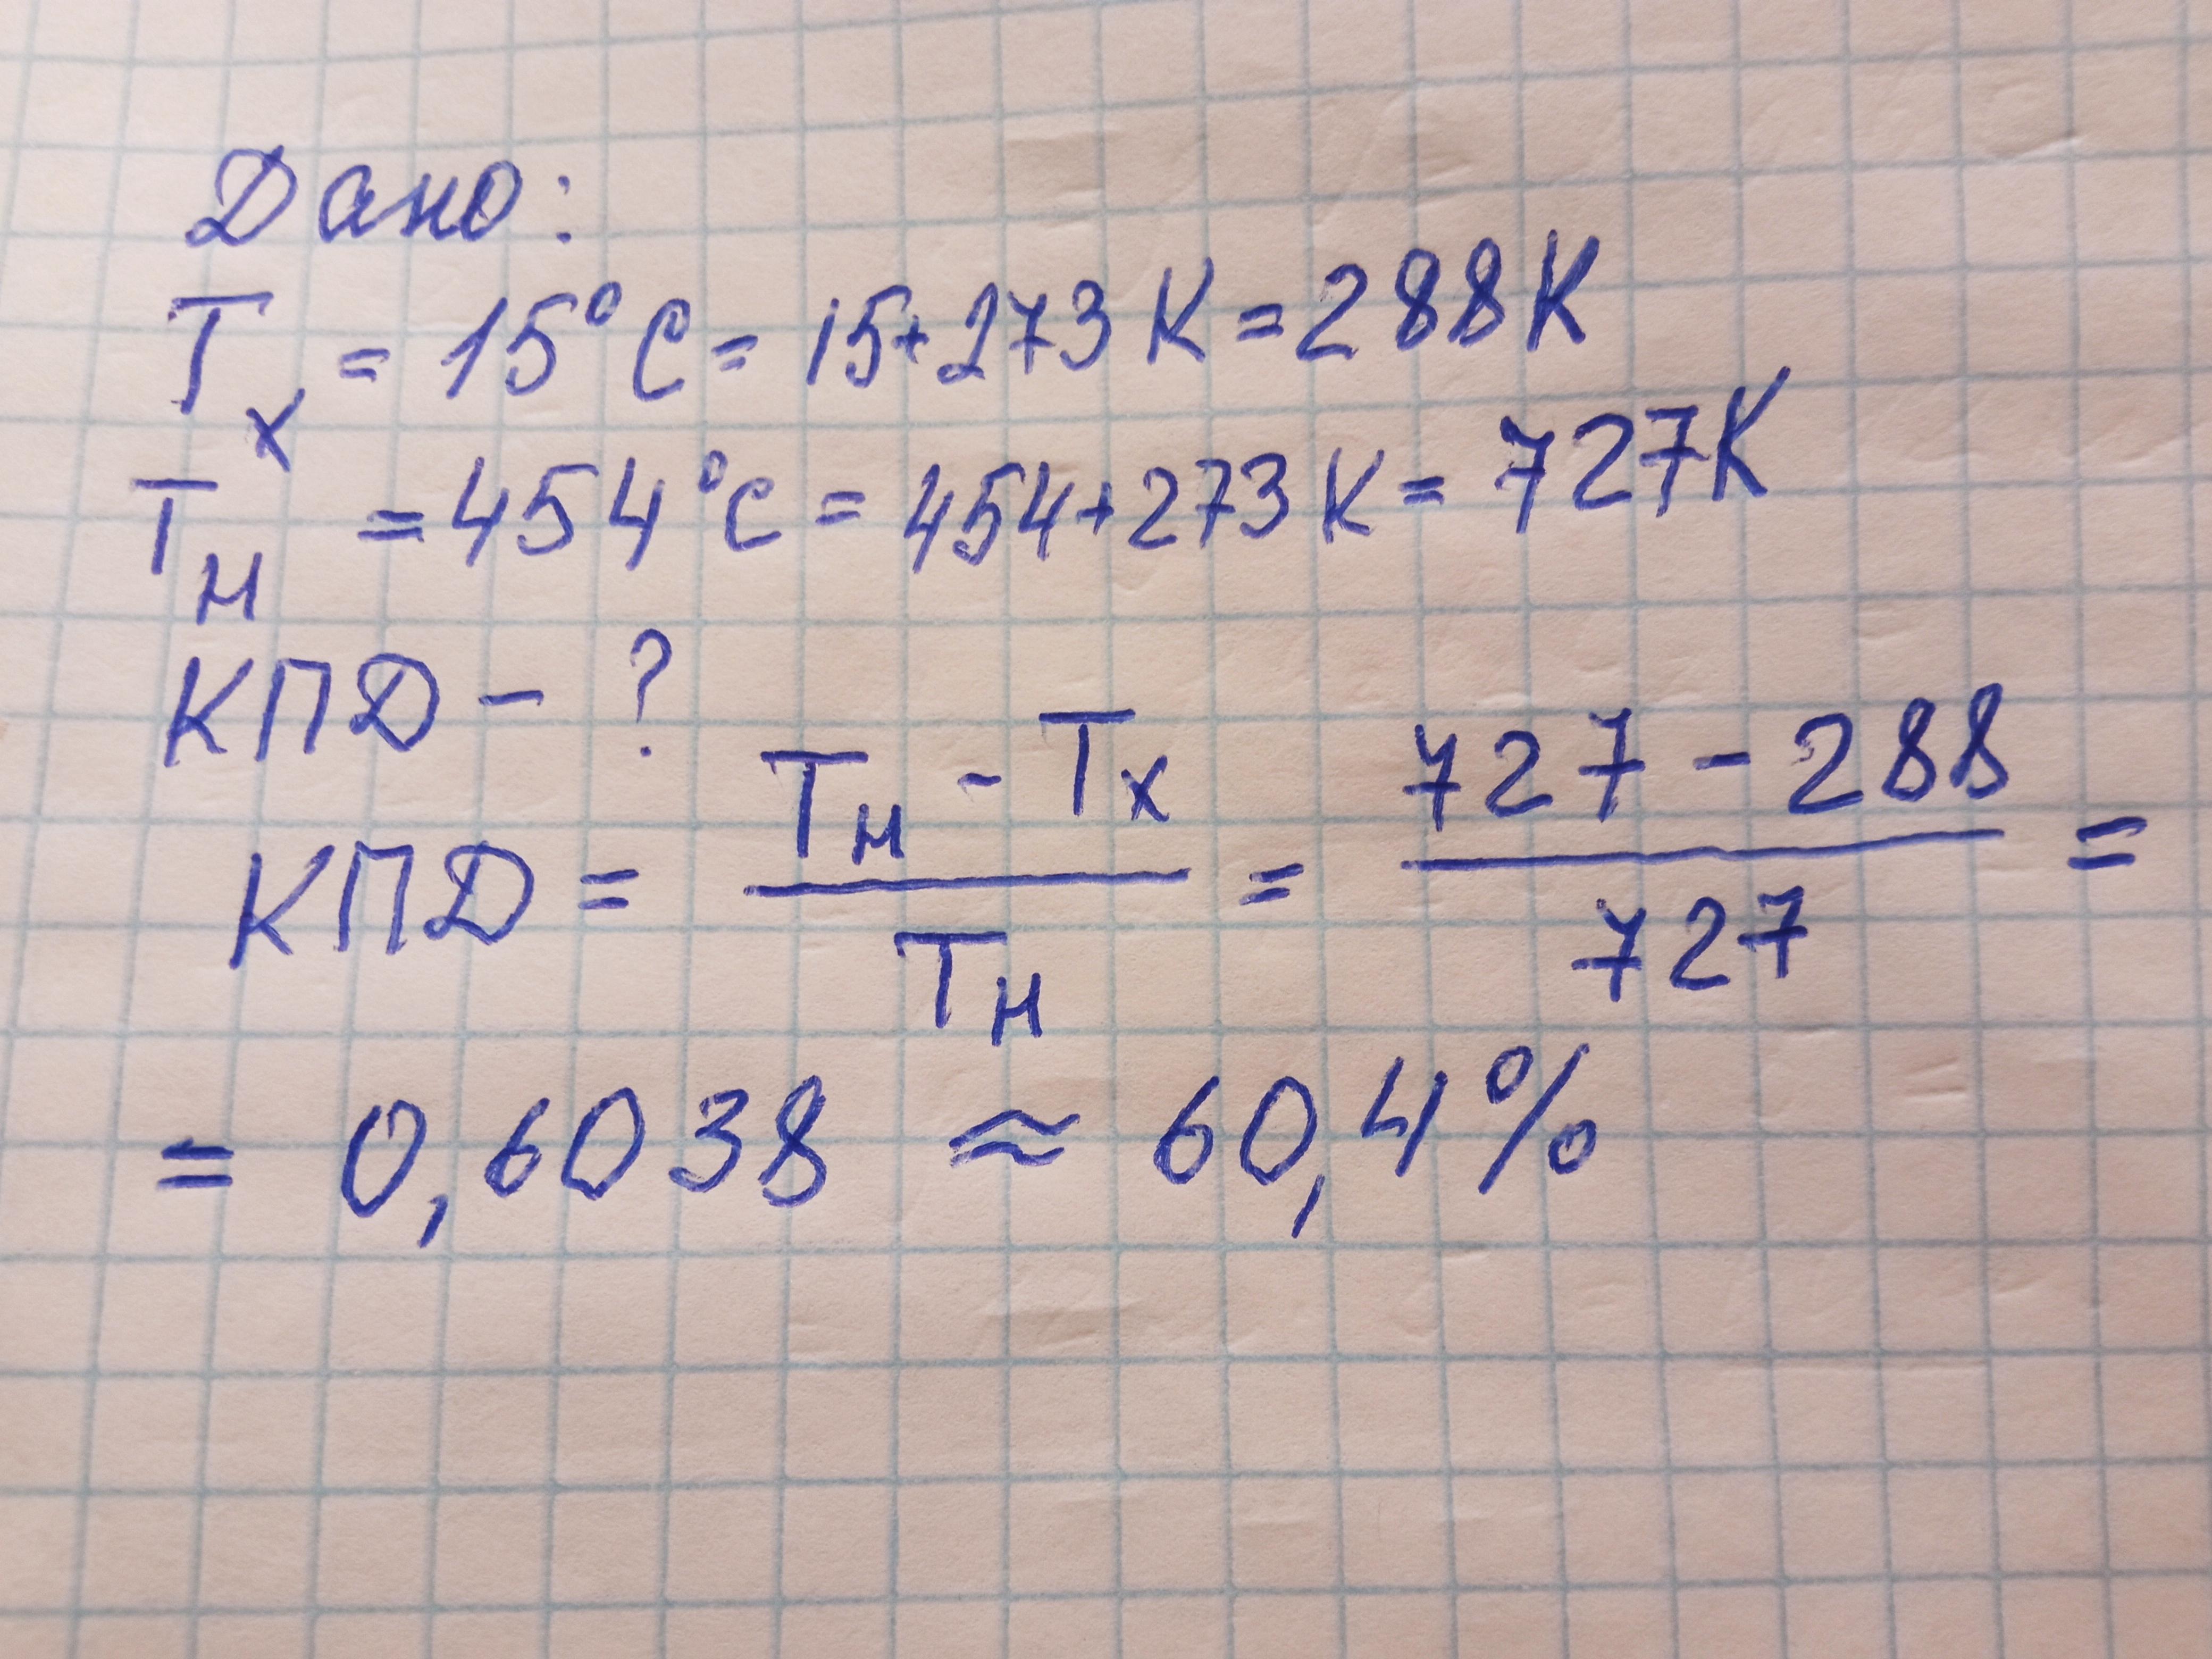 Дано:
Tх = 15°C = 15+273 K = 288K
Tн = 454°C = 454+273 K = 727K
КПД - ?
КПД = (Tн - Tх)/Tн = (727 - 288)/727 =
= 0,6038 ≈ 60,4%